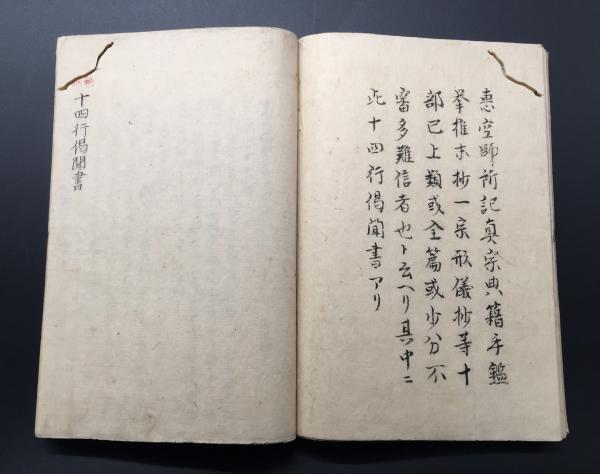 恵空師所記真宗典籍手鑑
挙推末抄一宗形儀抄等十
部已上類或全篇或少分不
審多難信者也ト云ヘリ其中ニ
此十四行偈聞書アリ
十四行偈聞書